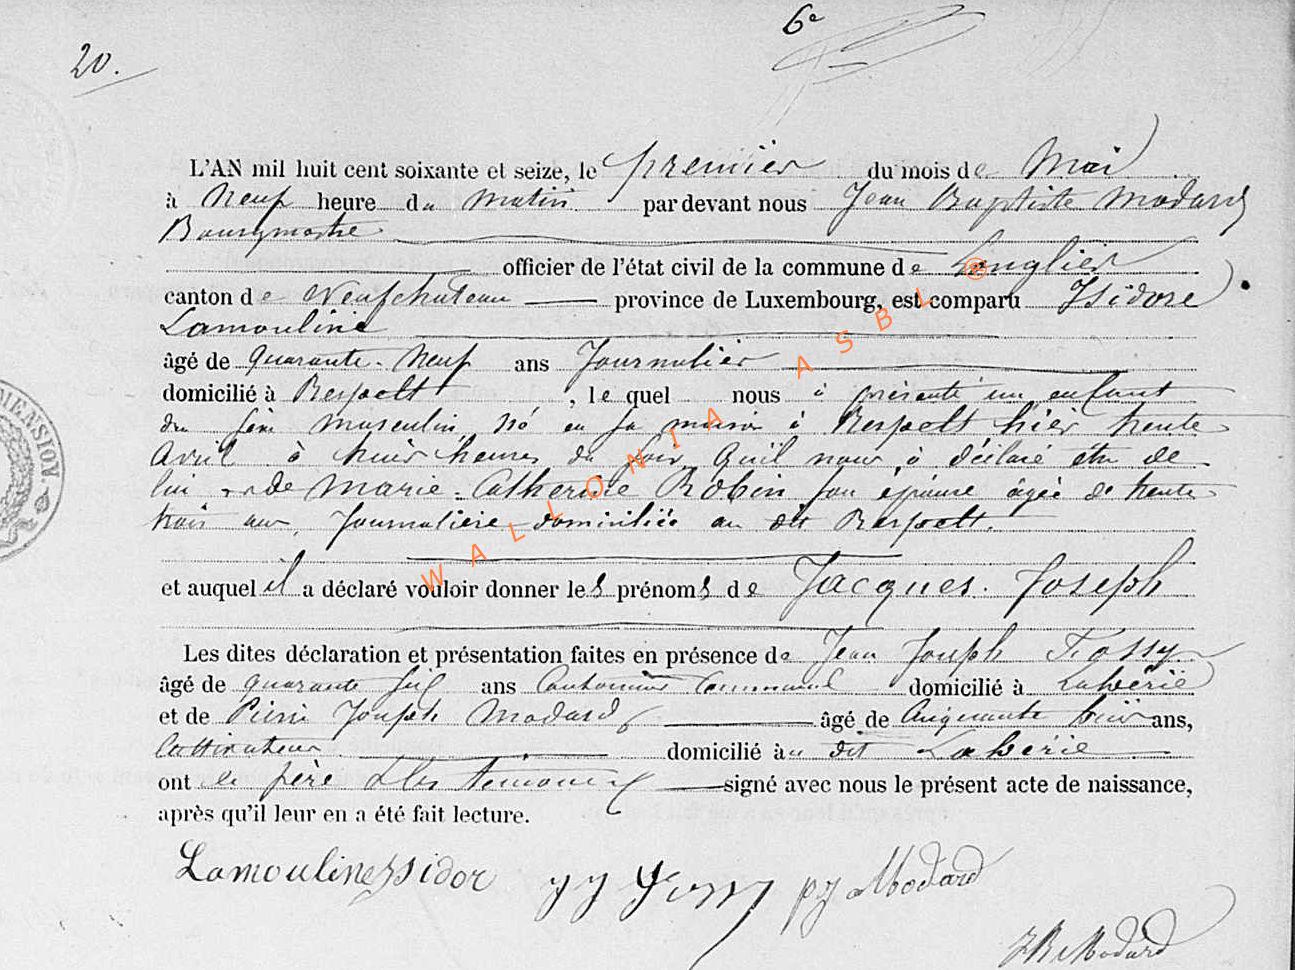 6e
20.
L'AN mil huit cent soixante et seize, le premier du mois de Mai
à Neuf heure du Matin par devant nous Jean Baptiste Modard
Bourgmestre
officier de l'état civil de la commune de Longlier
canton de Neufchateau province de Luxembourg, est comparu Isidore
Lamouline
âgé de quarante-neuf ans Journalier
domicilié à Respelt, le quel nous à présenté un enfant
du sexe masculin né en sa maison à Respelt hier trente
Avril à huit heures du soir, Qu'il nous à déclaré être de
lui et de Marie-Catherine Robin son épouse âgée de trente
trois ans, Journalière domiciliée au dit Respelt.
et auquel il a déclaré vouloir donner les prénoms de Jacques Joseph
Les dites déclaration et présentation faites en présence de Jean Joseph Fossy
âgé de quarante six ans Cantonnier Communal domicilié à Laherie
et de Pierre Joseph Modard âgé de Cinquante huit ans,
Cultivateur domicilié au dit Laherie
ont le père et les témoins signé avec nous le présent acte de naissance,
après qu'il leur en a été fait lecture.
Lamouline Isidor JJ Fossy PJ Modard
JB Modard
MENSION
WALLONIA ASBL ®